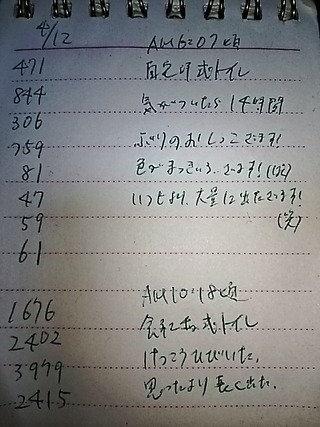 4/12 AM6:07頃
471 自宅洋式トイレ
844 気がついたら14時間
306 ぶりのおしっこでます!
959 色がまっきいろ、でます!(笑)
81 いつもより、大量に出たでます!
47 (笑)
59
61
AM10:18頃
1676 会社和式トイレ
2402 けっこうひびいた。
3979 思ったより長く出た。
2415